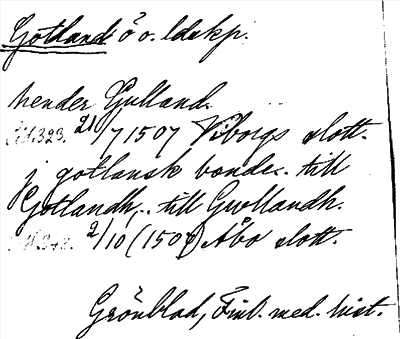 Gotland ö o. ldskp.
hender Gulland.
s. 323. 21/7 1507 Viborgs slott.
j gotlansk bonde.. till
Gotlandh,.. till Gwllandh.
2/10 (1508) Åbo slott.
Grönblad, Finl. med. hist.